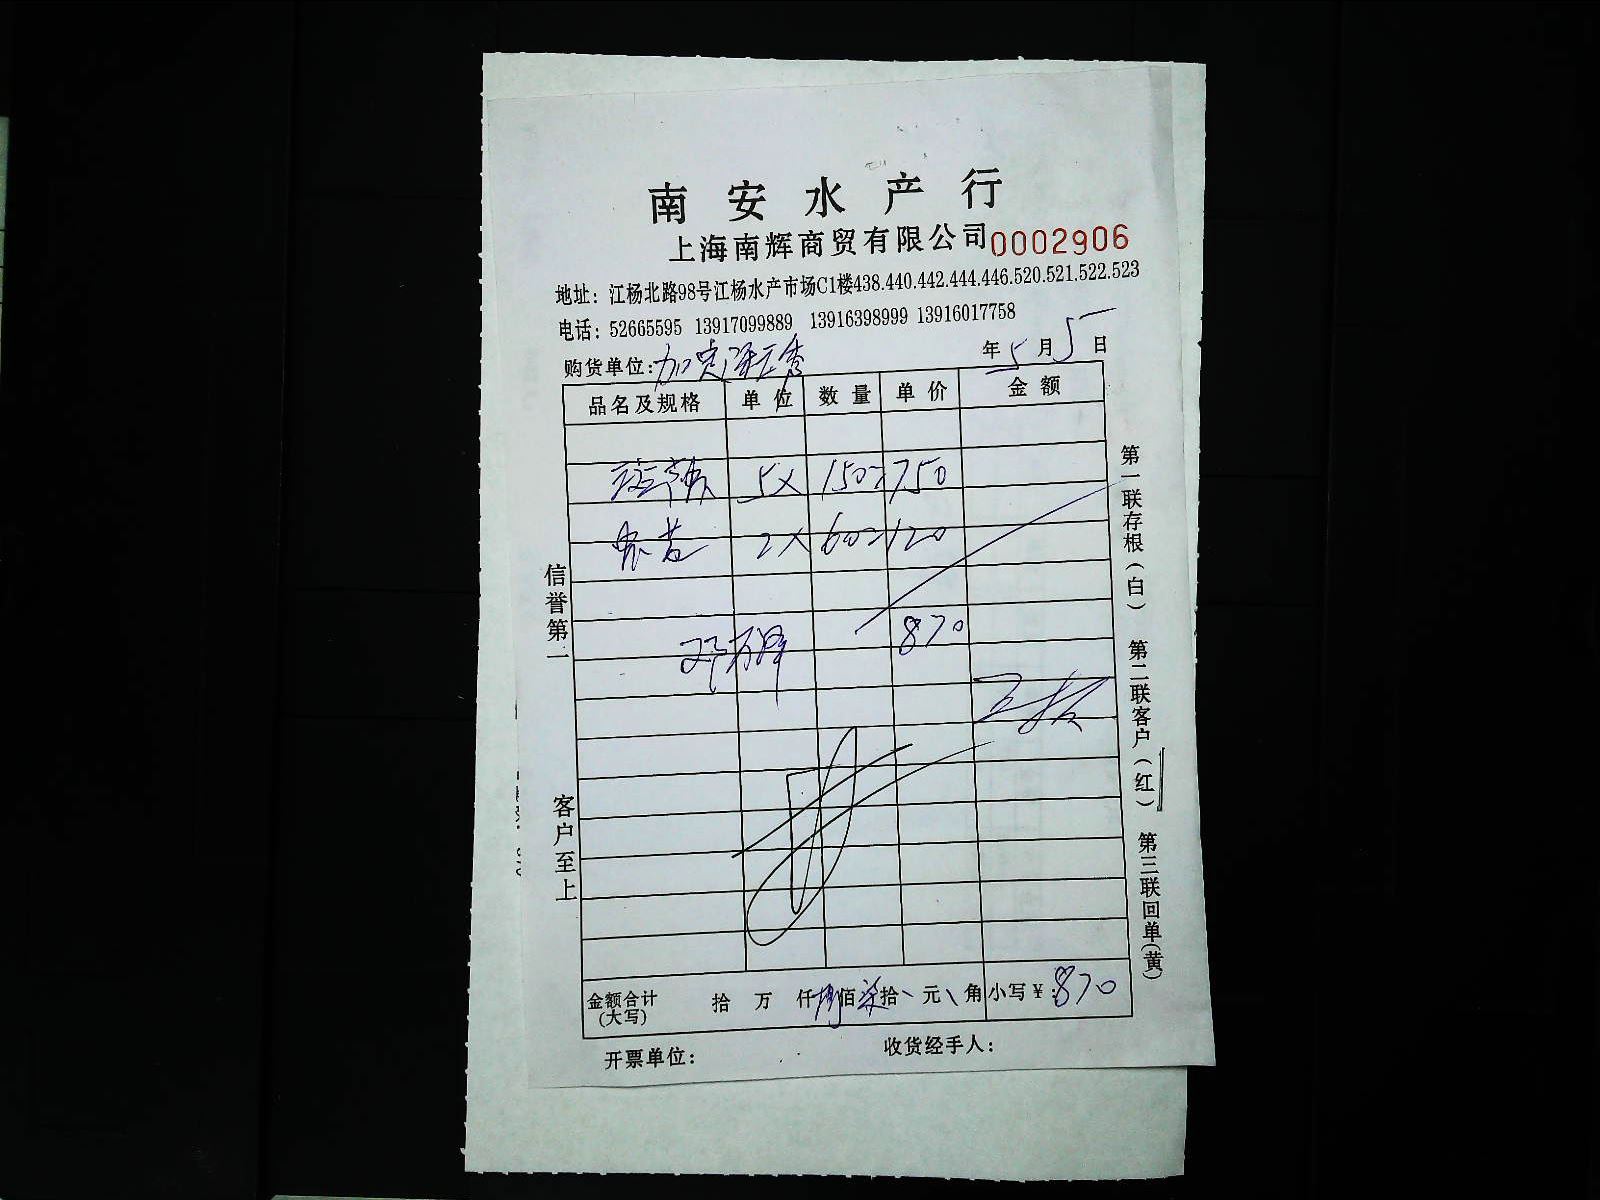 南安水产行
上海南辉商贸有限公司 0002906
地址：江杨北路98号江杨水产市场C1楼438.440.442.444.446.520.521.522.523
电话：52665595 13917099889 13916398999 13916017758
购货单位： 年5月5日
品名及规格 单位 数量 单价 金额
5× 150=750
2× 60=120
870
金额合计(大写) 拾 万 仟捌佰柒拾、元、角 小写￥:870
开票单位： 收货经手人：
信誉第一
客户至上
第一联存根(白) 第二联客户(红) 第三联回单(黄)